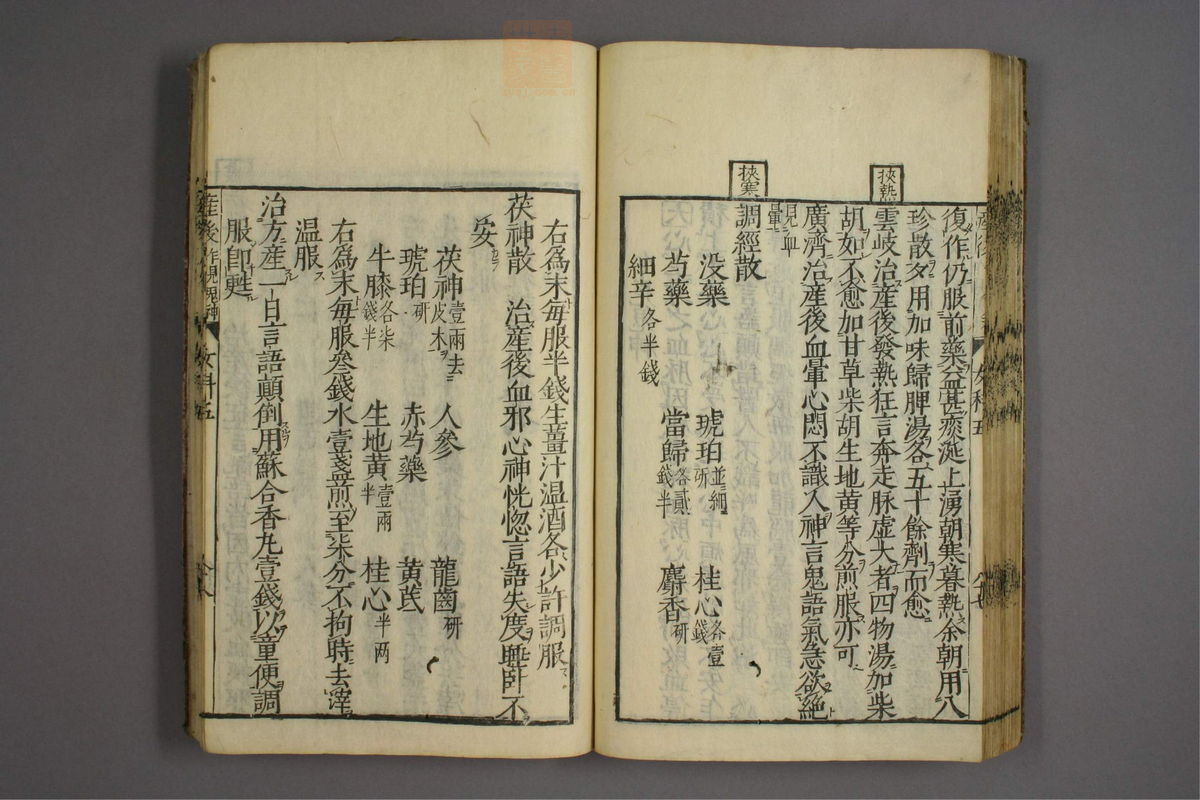 復作仍服前藥益甚痰涎上湧朝寒暮熱余朝用八
珍散夕用加味歸脾湯各五十餘劑而愈
挾熱
雲岐治產後發熱狂言奔走脉虛大者四物湯加柴
胡如不愈加甘草柴胡生地黃等分煎服亦可
廣濟治產後血暈心悶不識人神言鬼語氣急欲絶
見血
暈
挾寒
調經散
没藥 琥珀並細研 桂心各壹錢
芍藥 當歸各貳錢半 麝香研
細辛各半錢
右爲末每服半錢生薑汁温酒各少許調服
茯神散 治產後血邪心神恍惚言語失度睡卧不
安
茯神壹兩去皮木 人參 龍齒研
琥珀研 赤芍藥 黃芪
牛膝各柒錢半 生地黃壹兩半 桂心半两
右爲末每服叁錢水壹盞煎至柒分不拘時去滓
温服
治方產一日言語顛倒用蘇合香丸壹錢以童便調
服卽甦
產後
女科五